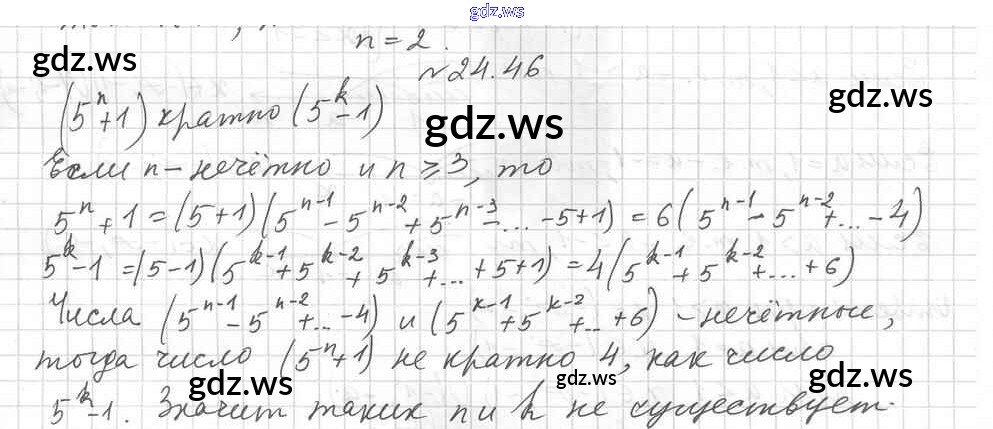 gdz.ws
n = 2.
gdz.ws
№24.46
gdz.ws
(5ⁿ+1) кратно (5ᵏ-1)
gdz.ws
Если n - нечётно и n ≥ 3, то
5ⁿ + 1 = (5+1)(5ⁿ⁻¹ - 5ⁿ⁻² + 5ⁿ⁻³ - ... - 5+1) = 6(5ⁿ⁻¹ - 5ⁿ⁻² + ... - 4)
5ᵏ - 1 = (5-1)(5ᵏ⁻¹ + 5ᵏ⁻² + 5ᵏ⁻³ + ... + 5+1) = 4(5ᵏ⁻¹ + 5ᵏ⁻² + ... + 6)
Числа (5ⁿ⁻¹ - 5ⁿ⁻² + ... - 4) и (5ᵏ⁻¹ + 5ᵏ⁻² + ... + 6) - нечётные,
тогда число (5ⁿ+1) не кратно 4, как число
gdz.ws gdz.ws gdz.ws
5ᵏ-1. Значит таких n и k не существует.